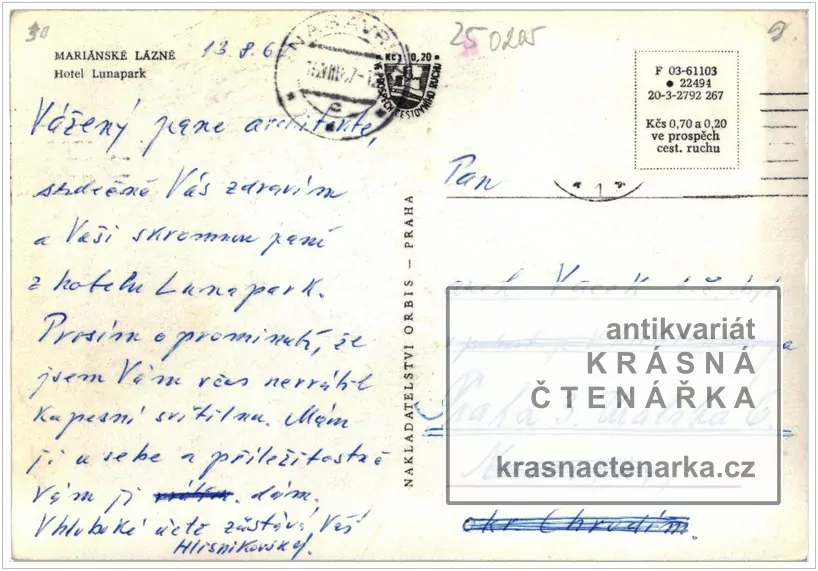 30
25 0205
9.
MARIÁNSKÉ LÁZNĚ
Hotel Lunapark
13.8.67
Kčs 0,20
VE PROSPĚCH CESTOVNÍHO RUCHU
F 03-61103
• 22494
20-3-2792 267
Kčs 0,70 a 0,20
ve prospěch
cest. ruchu
Vážený pane architekte,
srdečně Vás zdravím
a Vaši skromnou paní
z hotelu Lunapark.
Prosím o prominutí, že
jsem Vám včas nevrátil
kapesní svítilnu. Mám
ji u sebe a příležitostně
Vám ji dám.
V hluboké úctě zůstává Váš
Hlisnikovský.
NAKLADATELSTVÍ ORBIS – PRAHA
Pan
arch Vacek
Praha 3.
okr Chrudim.
antikvariát
KRÁSNÁ
ČTENÁŘKA
krasnactenarka.cz